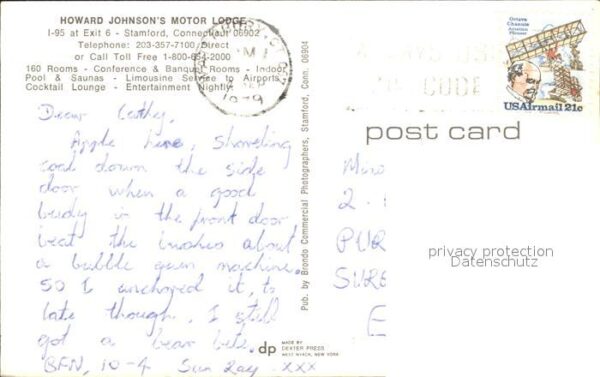 HOWARD JOHNSON'S MOTOR LODGE
I-95 at Exit 6 - Stamford, Connecticut 06902
Telephone: 203-357-7100 Direct
or Call Toll Free 1-800-654-2000
160 Rooms - Conference & Banquet Rooms - Indoor
Pool & Saunas - Limousine Service to Airports
Cocktail Lounge - Entertainment Nightly
Dear Cathy,
Apple here, shoveling
coal down the side
door when a good
buddy in the front door
beat the bushes about
a bubble gum machine.
So I anchored it, to
late though. I still
got a bear bite.
BFN, 10-4 Sun Ray. xxx
Pub. by Brondo Commercial Photographers, Stamford, Conn. 06904
dp
MADE BY
DEXTER PRESS
WEST NYACK, NEW YORK
1979
CODE
Octave
Chanute
Aviation
Pioneer
USAirmail 21c
post card
2.
PUR
SURR
E
privacy protection
Datenschutz